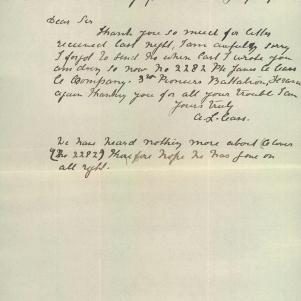 Dear Sir
Thank you so much for letter
received last night, I am awfully sorry
I forgot to send No when last I wrote you
am doing so now No 2282 Pte James
C Company. 3rd Pioneers Battalion, France
again thanking you for all your trouble I am
Yours Truly
We have heard nothing more about
(No 2282) therefore hope he has gone on
all right.